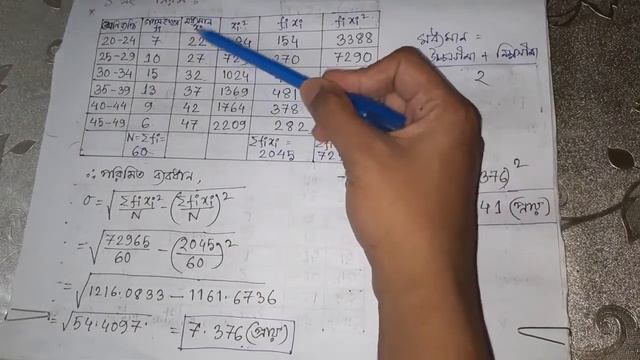 শ্রেণি ব্যাপ্তি গণসংখ্যা fi মধ্যমান xi xi² fi xi fi xi²
20-24 7 22 484 154 3388
25-29 10 27 729 270 7290
30-34 15 32 1024
35-39 13 37 1369 481
40-44 9 42 1764 378
45-49 6 47 2209 282
N=Σfi= 60 Σfi xi = 2045
মধ্যমান =
+ নিম্নসীমা
2
∴ পরিমিত ব্যবধান,
σ = √(Σfi xi²/N − (Σfi xi/N)²)
= √(72965/60 − (2045/60)²)
= √(1216.0833 − 1161.6736)
= √54.4097 = 7.376 (প্রায়)
376)²
41 (প্রায়)